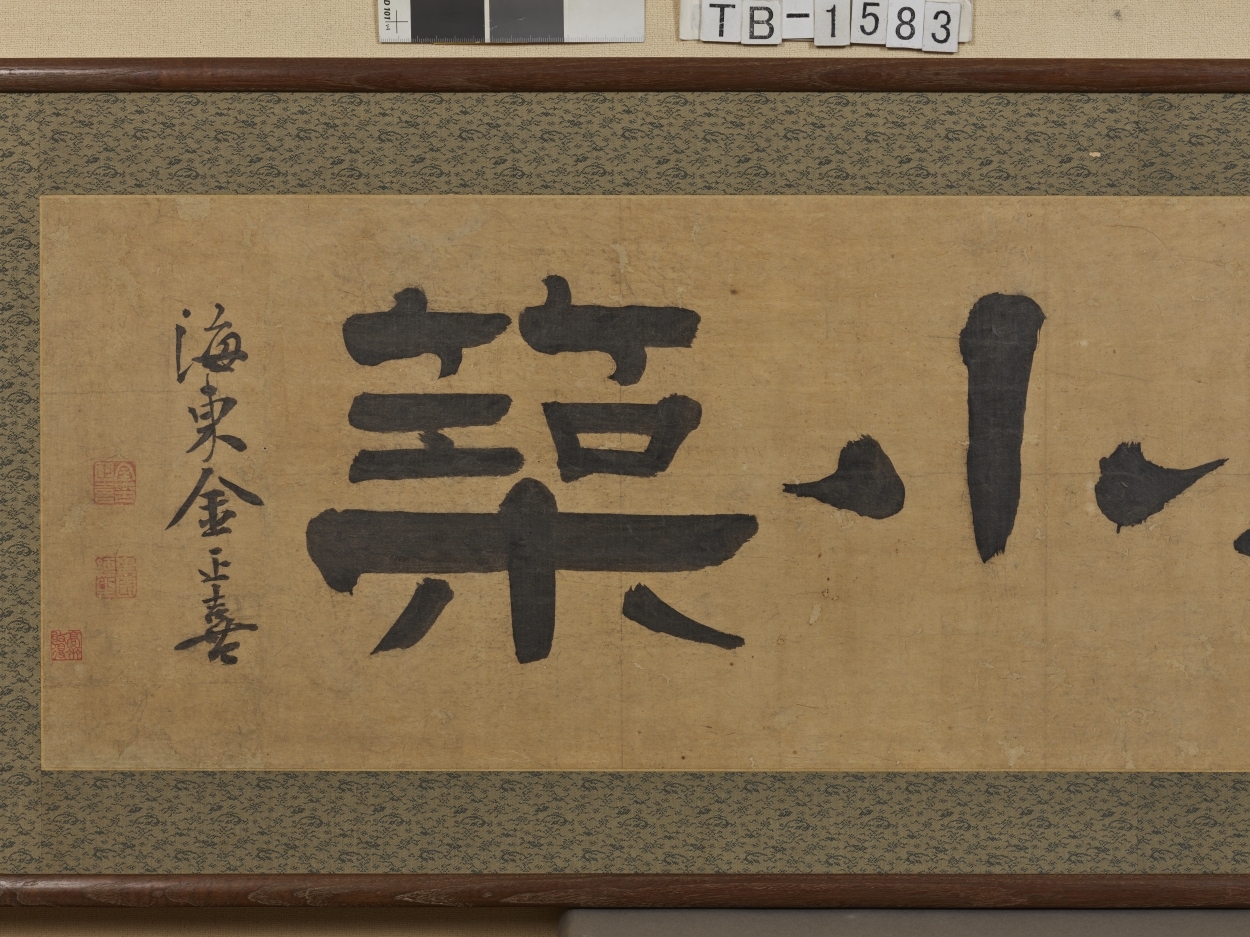 TB-1583
小築
海東金正喜